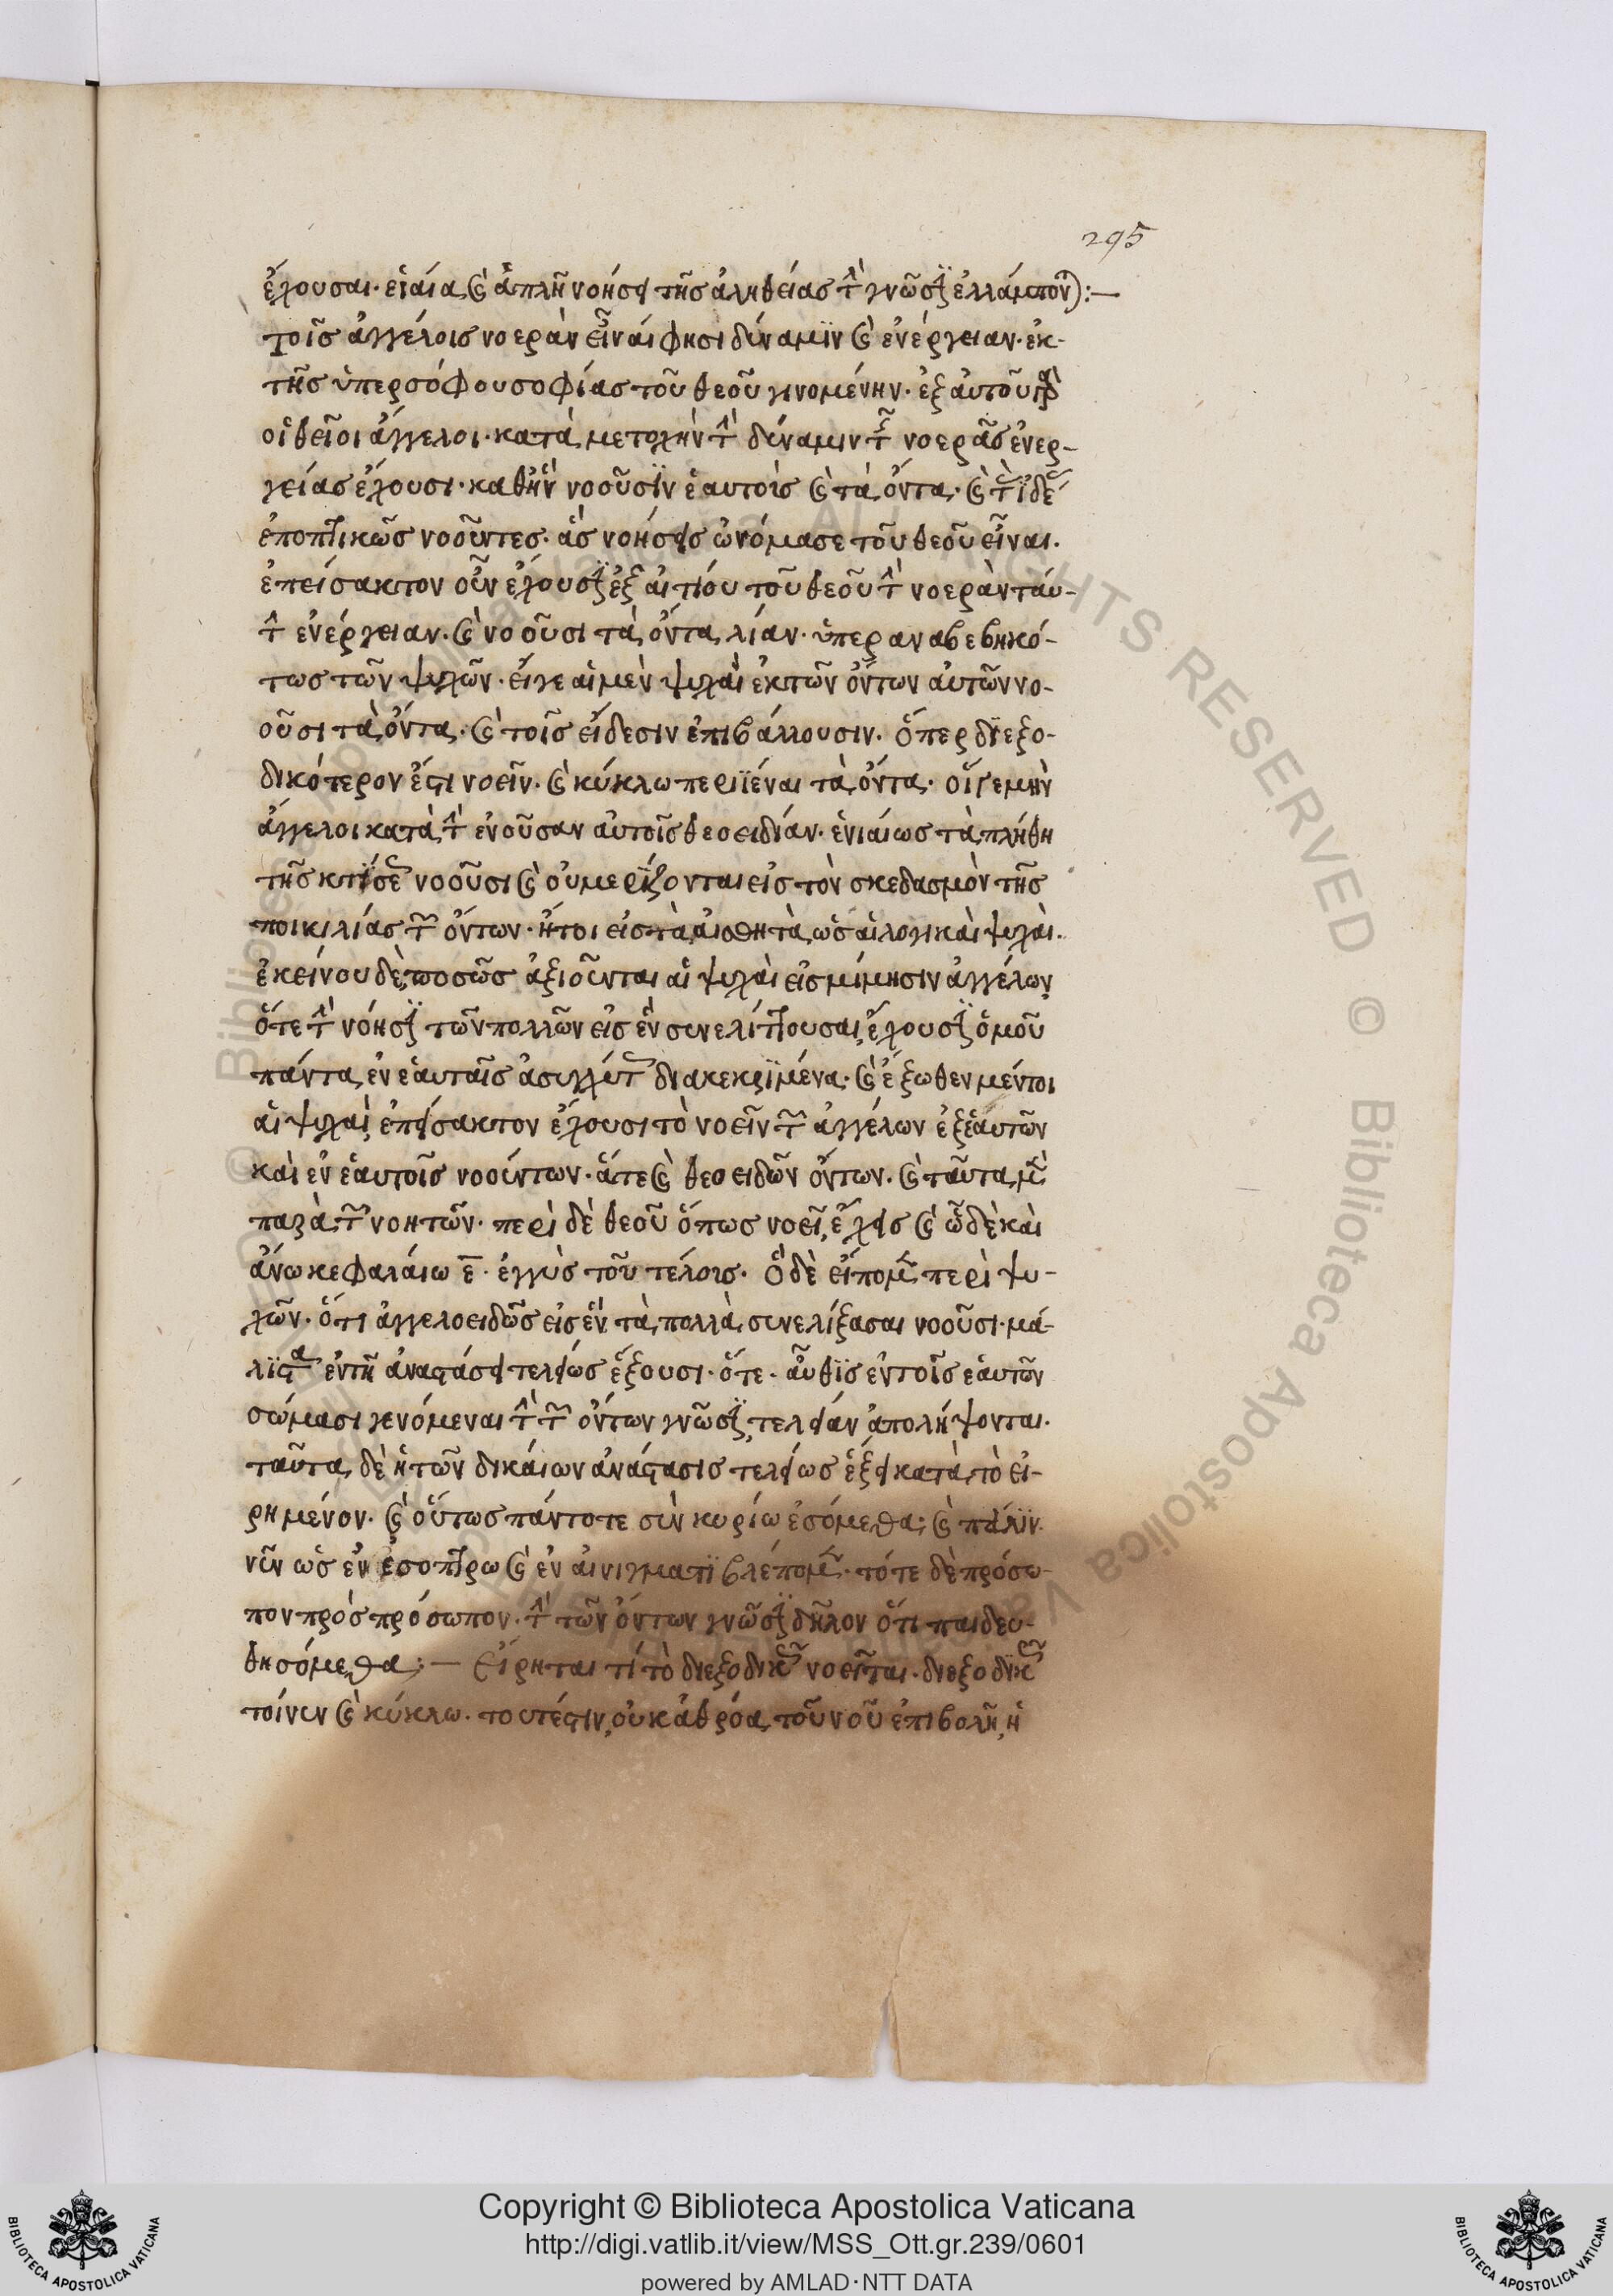 295
ἔχουσαι· ἑνιαία καὶ ἁπλῆ νοήσει τῆς ἀληθείας τὴν γνῶσιν ἐλλάμπονται:—
τοῖς ἀγγέλοις νοερὰν εἶναί φησι δύναμιν καὶ ἐνέργειαν· ἐκ
τῆς ὑπερσόφου σοφίας τοῦ θεοῦ γινομένην· ἐξ αὐτοῦ γὰρ
οἱ θεῖοι ἄγγελοι· κατὰ μετοχὴν τὴν δύναμιν τῆς νοερᾶς ἐνερ-
γείας ἔχουσι· καθ' ἣν νοοῦσιν ἑαυτοὺς καὶ τὰ ὄντα· καὶ τὰς ἰδέας
ἐποπτικῶς νοοῦντες· ἃς νοήσεις ὠνόμασε τοῦ θεοῦ εἶναι·
ἐπείσακτον οὖν ἔχουσιν ἐξ αἰτίου τοῦ θεοῦ τὴν νοερὰν ταύ-
την ἐνέργειαν· καὶ νοοῦσι τὰ ὄντα λίαν· ὑπεραναβεβηκό-
τως τῶν ψυχῶν· εἴγε αἱ μὲν ψυχαὶ ἐκ τῶν ὄντων αὐτῶν νο-
οῦσι τὰ ὄντα· καὶ τοῖς εἴδεσιν ἐπιβάλλουσιν· ὅπερ διεξο-
δικότερον ἐστι νοεῖν· καὶ κύκλω περιϊέναι τὰ ὄντα· οἵ γε μὴν
ἄγγελοι κατὰ τὴν ἐνοῦσαν αὐτοῖς θεοειδίαν· ἑνιαίως τὰ πλήθη
τῆς κτίσεως νοοῦσι καὶ οὐ μερίζονται εἰς τὸν σκεδασμὸν τῆς
ποικιλίας τῶν ὄντων· ἤτοι εἰς τὰ αἰσθητὰ ὡς αἱ λογικαὶ ψυχαὶ·
ἐκείνου δὲ ποσῶς ἀξιοῦνται αἱ ψυχαὶ εἰς μίμησιν ἀγγέλων
ὅτε τὴν νόησιν τῶν πολλῶν εἰς ἓν συνελίττουσαι, ἔχουσιν ὁμοῦ
πάντα ἐν ἑαυταῖς ἀσυγχύτως διακεκριμένα· καὶ ἔξωθεν μέντοι
αἱ ψυχαὶ ἐπείσακτον ἔχουσι τὸ νοεῖν τῶν ἀγγέλων ἐξ ἑαυτῶν
καὶ ἐν ἑαυτοῖς νοούντων· ἅτε καὶ θεοειδῶν ὄντων· καὶ ταῦτα μὲν
παρὰ τῶν νοητῶν· περὶ δὲ θεοῦ ὅπως νοεῖ, ἔχεις καὶ ὧδε καὶ
ἄνω κεφαλαίω ε· ἐγγὺς τοῦ τέλους· ὃ δὲ εἴπομεν περὶ ψυ-
χῶν· ὅτι ἀγγελοειδῶς εἰς ἓν τὰ πολλὰ συνελίξασαι νοοῦσι· μά-
λιστα ἐν τῆ ἀναστάσει τελείως ἕξουσι· ὅτε· αὖθις ἐν τοῖς ἑαυτῶν
σώμασι γενόμεναι τὴν τῶν ὄντων γνῶσιν, τελείαν ἀπολήψονται·
ταῦτα δὲ ἡ τῶν δικαίων ἀνάστασις τελείως ἕξει κατὰ τὸ εἰ-
ρημένον· καὶ οὕτως πάντοτε σὺν κυρίω ἐσόμεθα; καὶ πάλιν·
νῦν ὡς ἐν ἐσόπτρω καὶ ἐν αἰνίγματι βλέπομεν· τότε δὲ πρόσω-
πον πρὸς πρόσωπον· τὴν τῶν ὄντων γνῶσιν δῆλον ὅτι παιδευ-
θησόμεθα;— Εἴρηται τί τὸ διεξοδικῶς νοεῖται· διεξοδικῶς
τοίνυν καὶ κύκλω· τουτέστιν, οὐκ ἀθρόα τοῦ νοῦ ἐπιβολῆ, ἡ
Copyright © Biblioteca Apostolica Vaticana
http://digi.vatlib.it/view/MSS_Ott.gr.239/0601
powered by AMLAD·NTT DATA